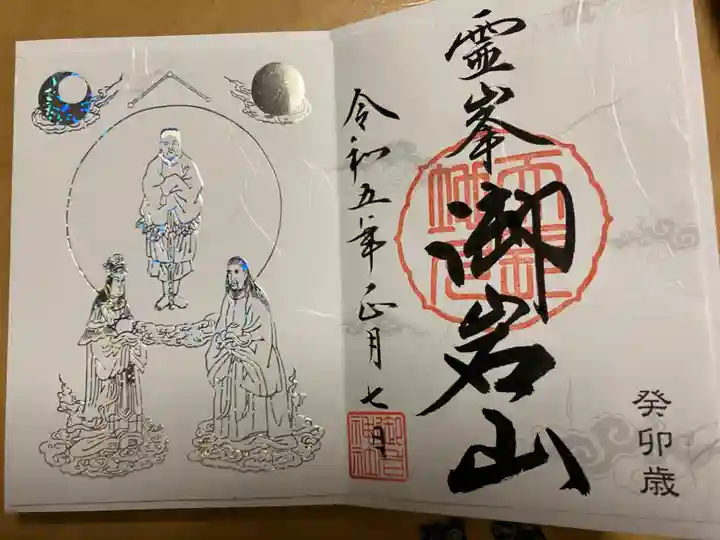 霊峯
御岩山
癸卯歳
令和五年正月七日
御岩神社